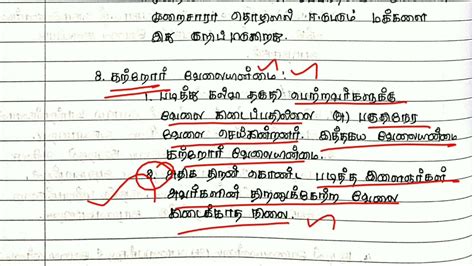 முறைசாரா தொழிலில் ஈடுபடும் மக்களை
இது குறிப்பிடுகிறது.
8. கற்றோர் வேலையின்மை :
1. படித்த கல்வி தகுதி பெற்றவர்களுக்கு
வேலை கிடைப்பதில்லை (அ) பகுதிநேர
வேலை செய்கின்றனர். இத்தகைய வேலையின்மை
கற்றோர் வேலையின்மை.
2. அதிக திறன் கொண்ட படித்த இளைஞர்கள்
அவர்களின் திறனுக்கேற்ற வேலை
கிடைக்காத நிலை.